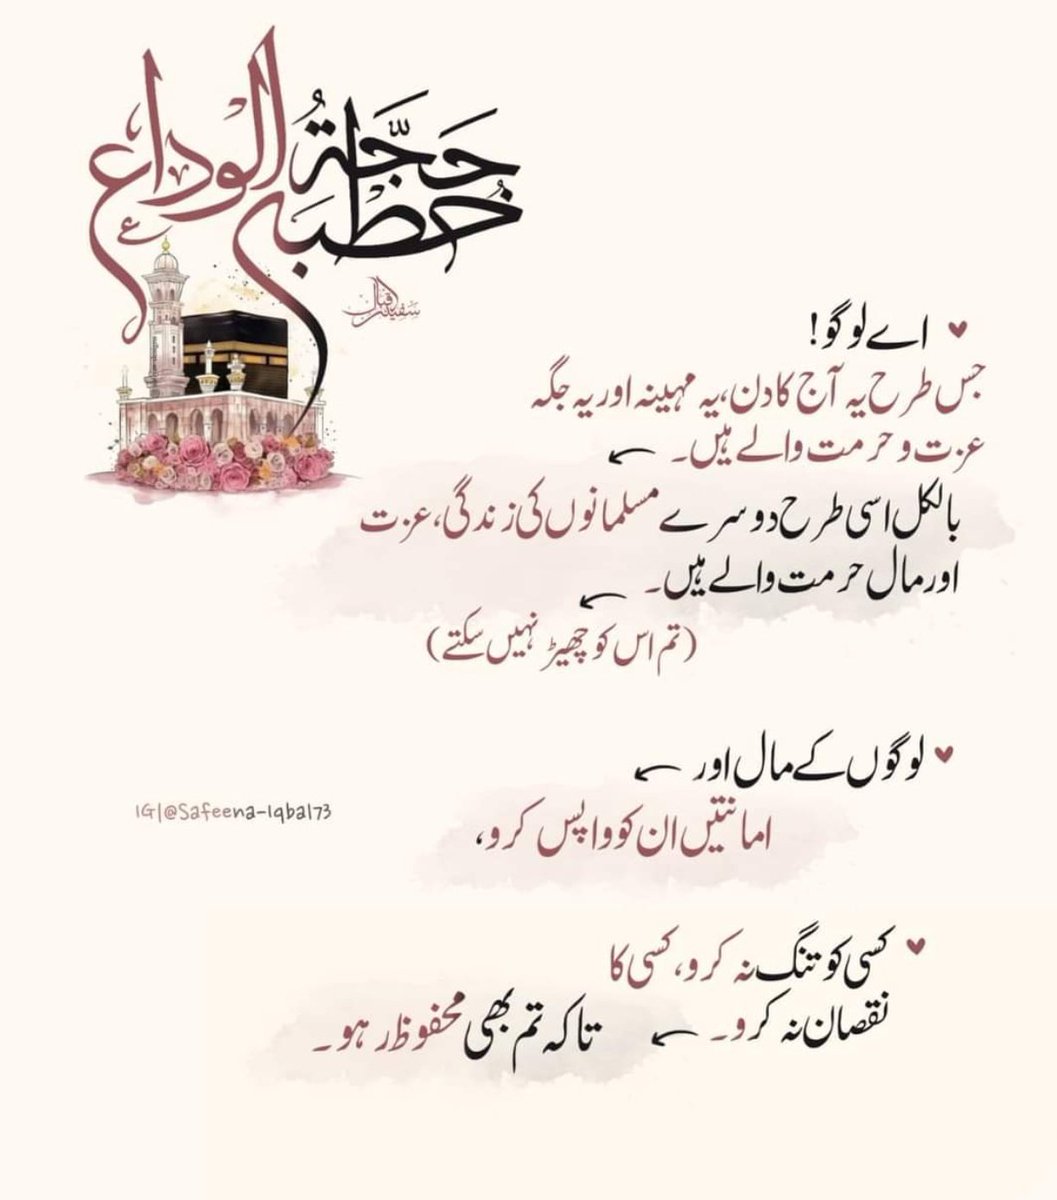 خطبہ حجۃُ الوداع
سفینہ اقبال
اے لوگو!
جس طرح یہ آج کا دن، یہ مہینہ اور یہ جگہ
عزت و حرمت والے ہیں۔
بالکل اسی طرح دوسرے مسلمانوں کی زندگی، عزت
اور مال حرمت والے ہیں۔
(تم اس کو چھیڑ نہیں سکتے)
لوگوں کے مال اور
امانتیں ان کو واپس کرو،
IG|@Safeena-Iqbal73
کسی کو تنگ نہ کرو، کسی کا
نقصان نہ کرو۔
تاکہ تم بھی محفوظ رہو۔